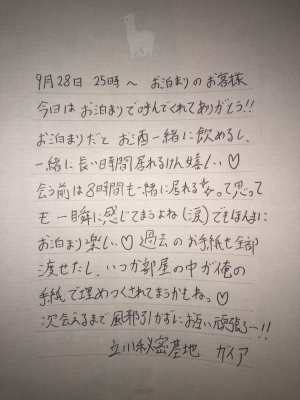 9月28日 25時〜 お泊まりのお客様
今日はお泊まりで呼んでくれてありがとう!!
お泊まりだと お酒一緒に飲めるし、
一緒に長い時間居れるけん嬉しい♡
会う前は8時間も一緒に居れるやって思って
も一瞬に感じてまうよね(涙)でもほんまに
お泊まり楽しい♡過去のお手紙も全部
渡せたし、いつか部屋の中が俺の
手紙で埋めつくされてまうかもねっ♡
次会えるまで風邪引かずにお互い頑張ろー!!
立川秘密基地 ガイア